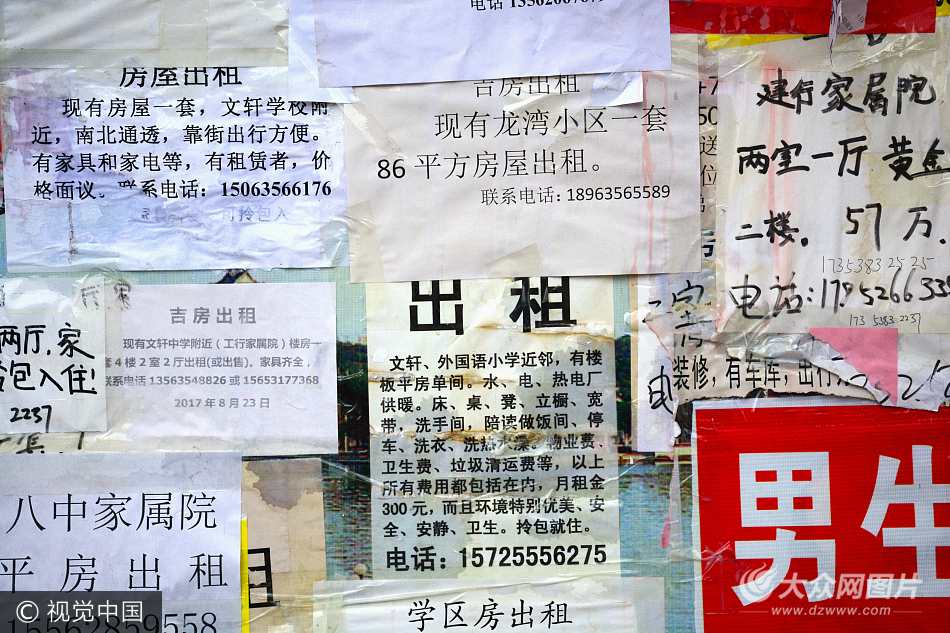 房屋出租
现有房屋一套，文轩学校附
近，南北通透，靠街出行方便。
有家具和家电等，有租赁者，价
格面议。联系电话：15063566176
吉房出租
现有龙湾小区一套
86平方房屋出租。
联系电话：18963565589
建行家属院
两室一厅 黄金
二楼。57万。
1735383 25 25
电话：
两厅，家
包入住！
2237
吉房出租
现有文轩中学附近（工行家属院）楼房一
套4楼2室2厅出租(或出售)。家具齐全，
联系电话 13563548826 或 15653177368
2017年8月23日
出 租
文轩、外国语小学近邻，有楼
板平房单间。水、电、热电厂
供暖。床、桌、凳、立橱、宽
带，洗手间，陪读做饭间、停
车、洗衣、洗热水澡。物业费、
卫生费、垃圾清运费等，以上
所有费用都包括在内，月租金
300元，而且环境特别优美、安
全、安静、卫生。拎包就住。
电话：15725556275
装修，有车库，出行
八中家属院
平房出租
学区房出租
男生
© 视觉中国
大众网图片
www.dzwww.com